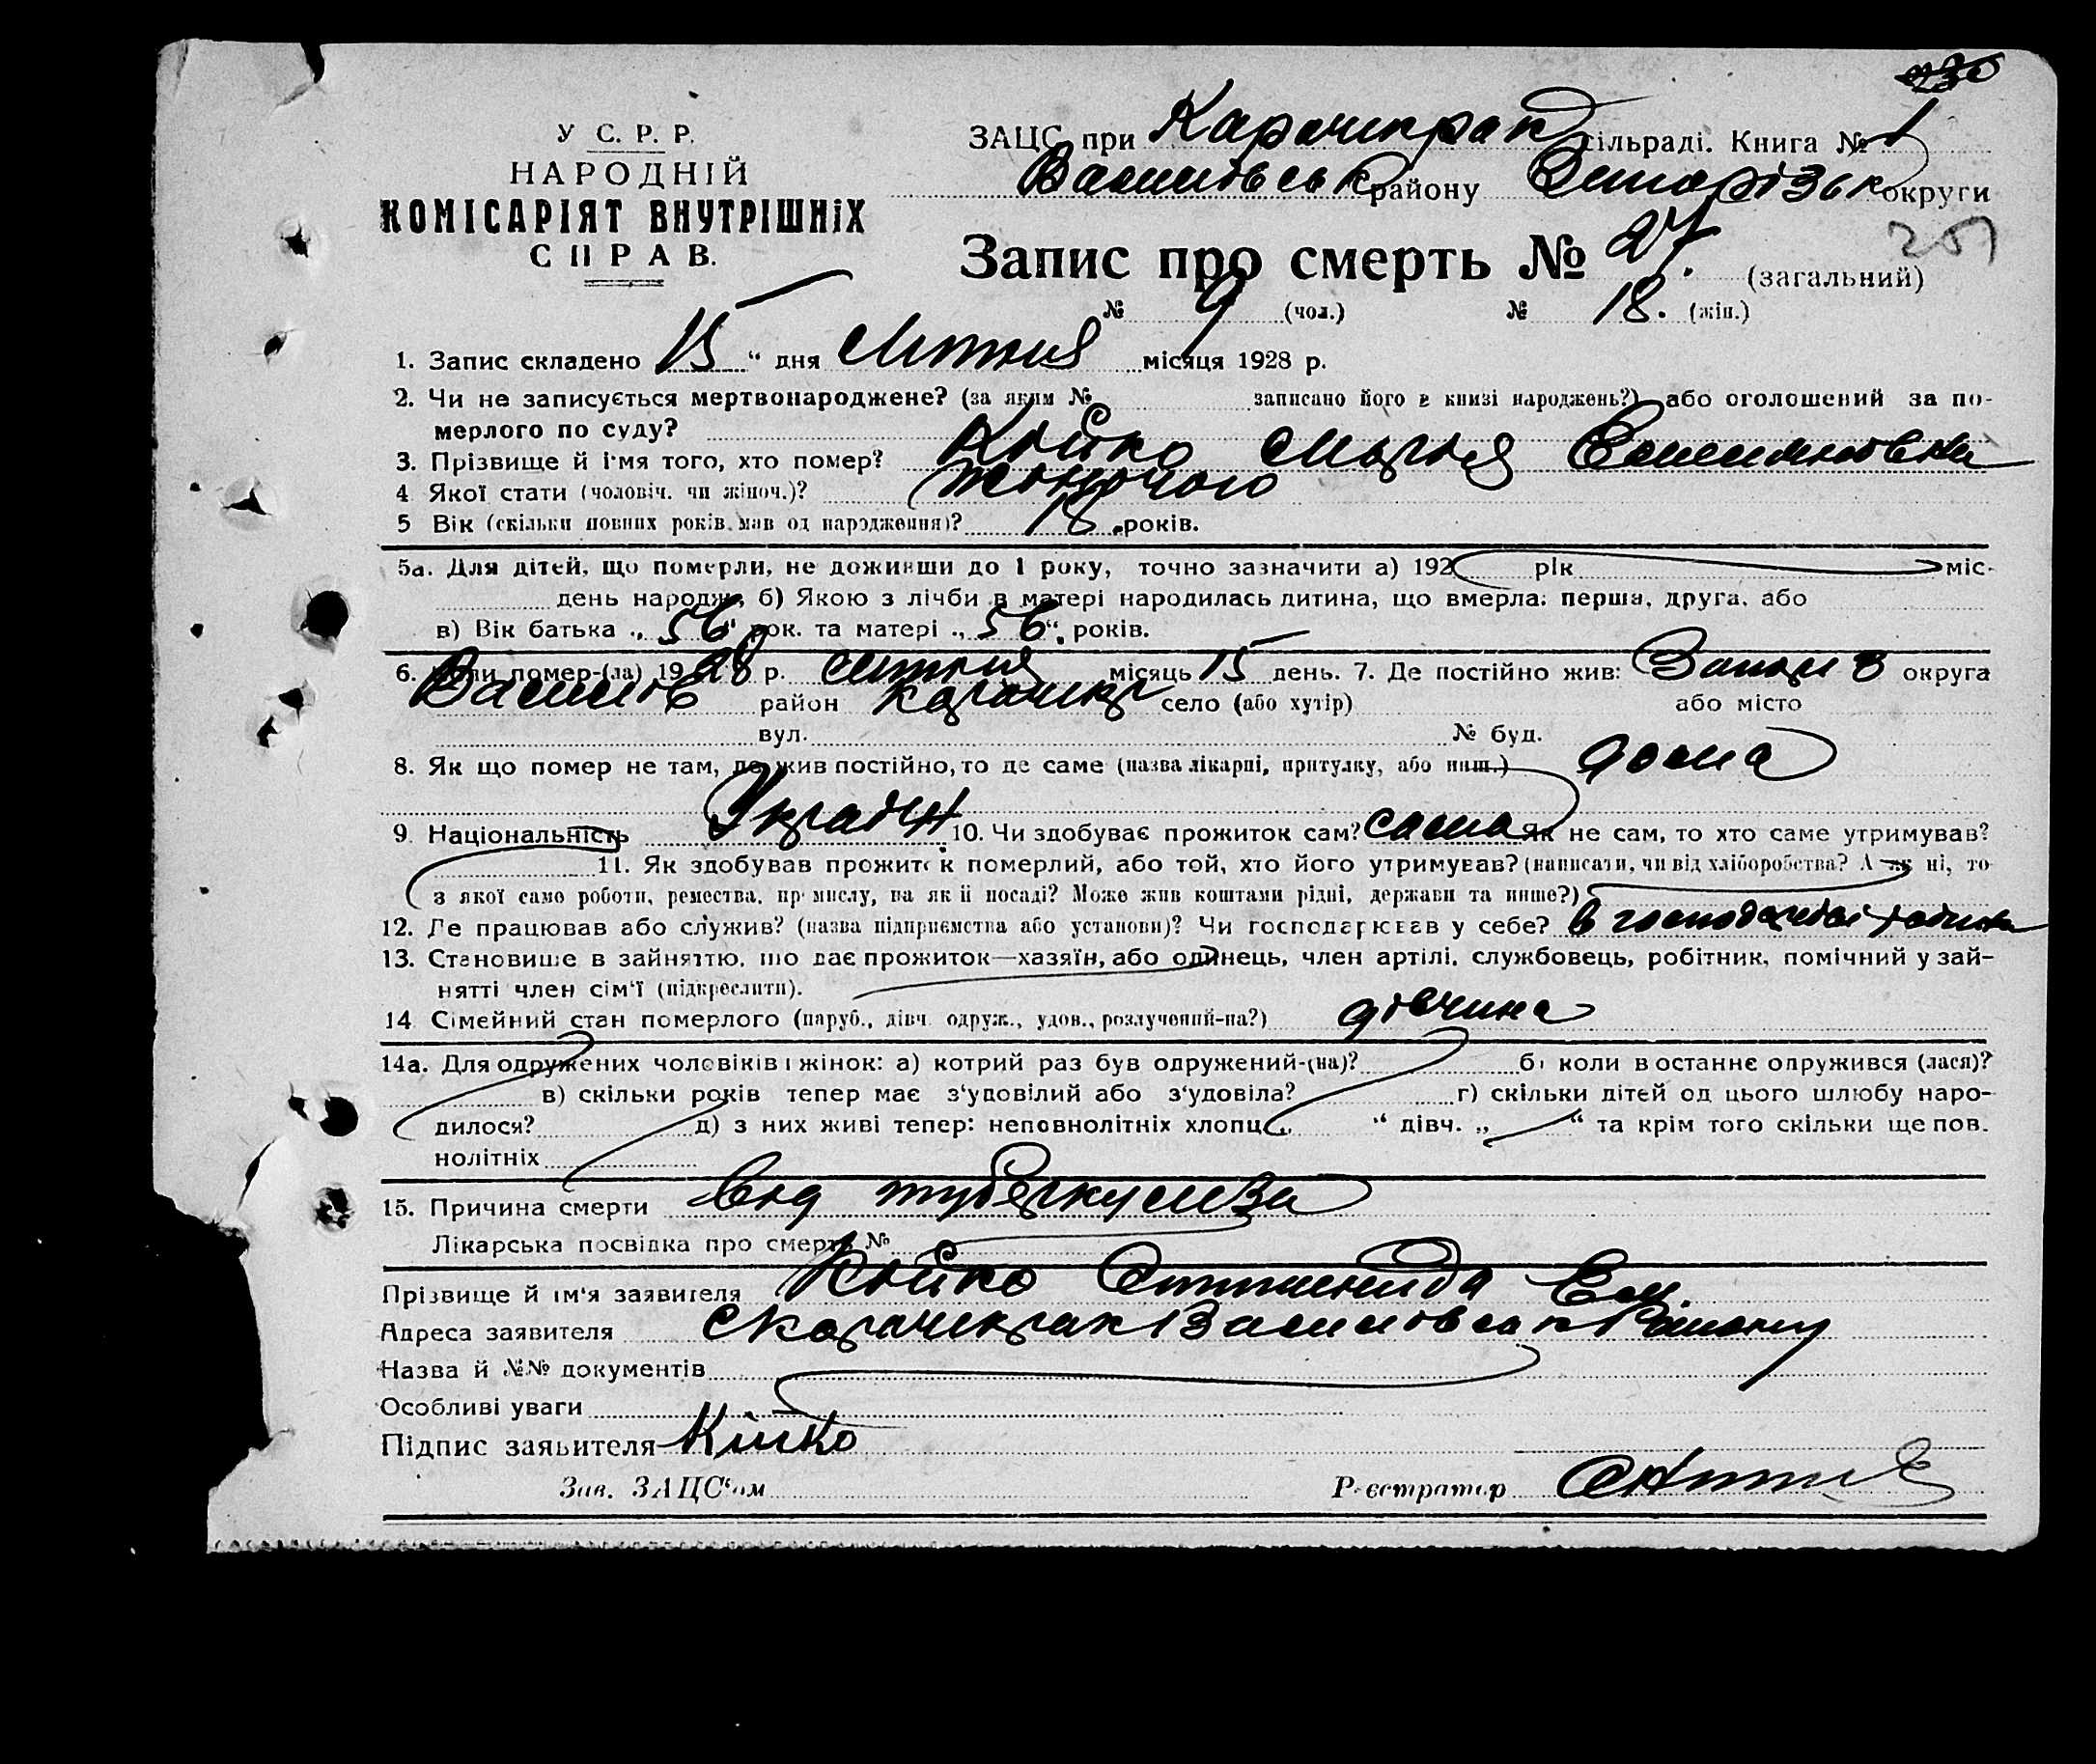 У С. Р. Р.
НАРОДНІЙ
КОМІСАРІЯТ ВНУТРІШНІХ
СПРАВ.
ЗАЦС при Карачикрак сільраді. Книга № 1
Василівськ району Запорізьк округи
Запис про смерть № 27. (загальний)
№ 9 (чол.) № 18. (жін.)
1. Запис складено 15 “ дня місяця 1928 р.
2. Чи не записується мертвонароджене? (за яким № записано його в книзі народжень?) або оголошений за по-
мерлого по суду?
3. Прізвище й і'мя того, хто помер? Кійко Марія
4 Якої стати (чоловіч. чи жіноч.)? жіночого
5 Вік (скільки повних років мав од народження)? 18 років.
5а. Для дітей, що померли, не доживши до 1 року, точно зазначити а) 192 рік міс-
день народж., б) Якою з лічби в матері народилась дитина, що вмерла: перша, друга, або
в) Вік батька „ 56“ рок. та матері „ 56“ років.
6. Коли помер-(ла) 1928 р. місяць 15 день. 7. Де постійно жив: округа
Василів район Карачикр село (або хутір) або місто
вул. № буд.
8. Як що помер не там, де жив постійно, то де саме (назва лікарні, притулку, або инш.) дома
9. Національність Україн 10. Чи здобуває прожиток сам? сама Як не сам, то хто саме утримував?
11. Як здобував прожиток померлий, або той, хто його утримував? (написати, чи від хліборобства? А як ні, то
з якої само роботи, ремества, промислу, на якій посаді? Може жив коштами рідні, держави та инше?)
12. Де працював або служив? (назва підприємства або установи)? Чи господарював у себе? в господарстві
13. Становище в зайняттю, що дає прожиток—хазяїн, або одинець, член артілі, службовець, робітник, помічний у зай-
нятті член сім'ї (підкреслити).
14 Сімейний стан померлого (паруб., дівч. одруж., удов., розлучений-на?) дівчина
14а. Для одружених чоловіків і жінок: а) котрий раз був одружений-(на)? б) коли в останнє одружився (лася)?
в) скільки років тепер має з'удовілий або з'удовіла? г) скільки дітей од цього шлюбу наро-
дилося? д) з них живі тепер: неповнолітніх хлопц. „ “ дівч. „ “ та крім того скільки ще пов.
нолітніх
15. Причина смерти Від туберкульоза
Лікарська посвідка про смерть №
Прізвище й ім'я заявителя Кійко
Адреса заявителя с Карачикрак Василівськ Району
Назва й №№ документів
Особливі уваги
Підпис заявителя Кійко
Зав. ЗАЦС'ом Реєстратор